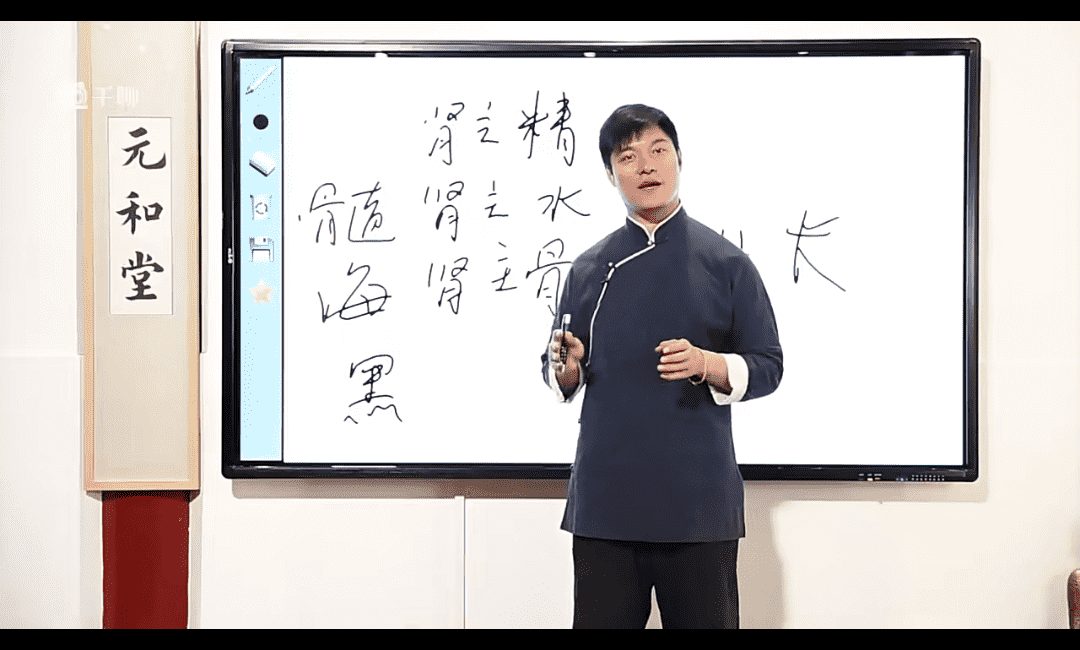 千聊
元
和
堂
肾主精
髓 肾主水
海 肾主骨
黑